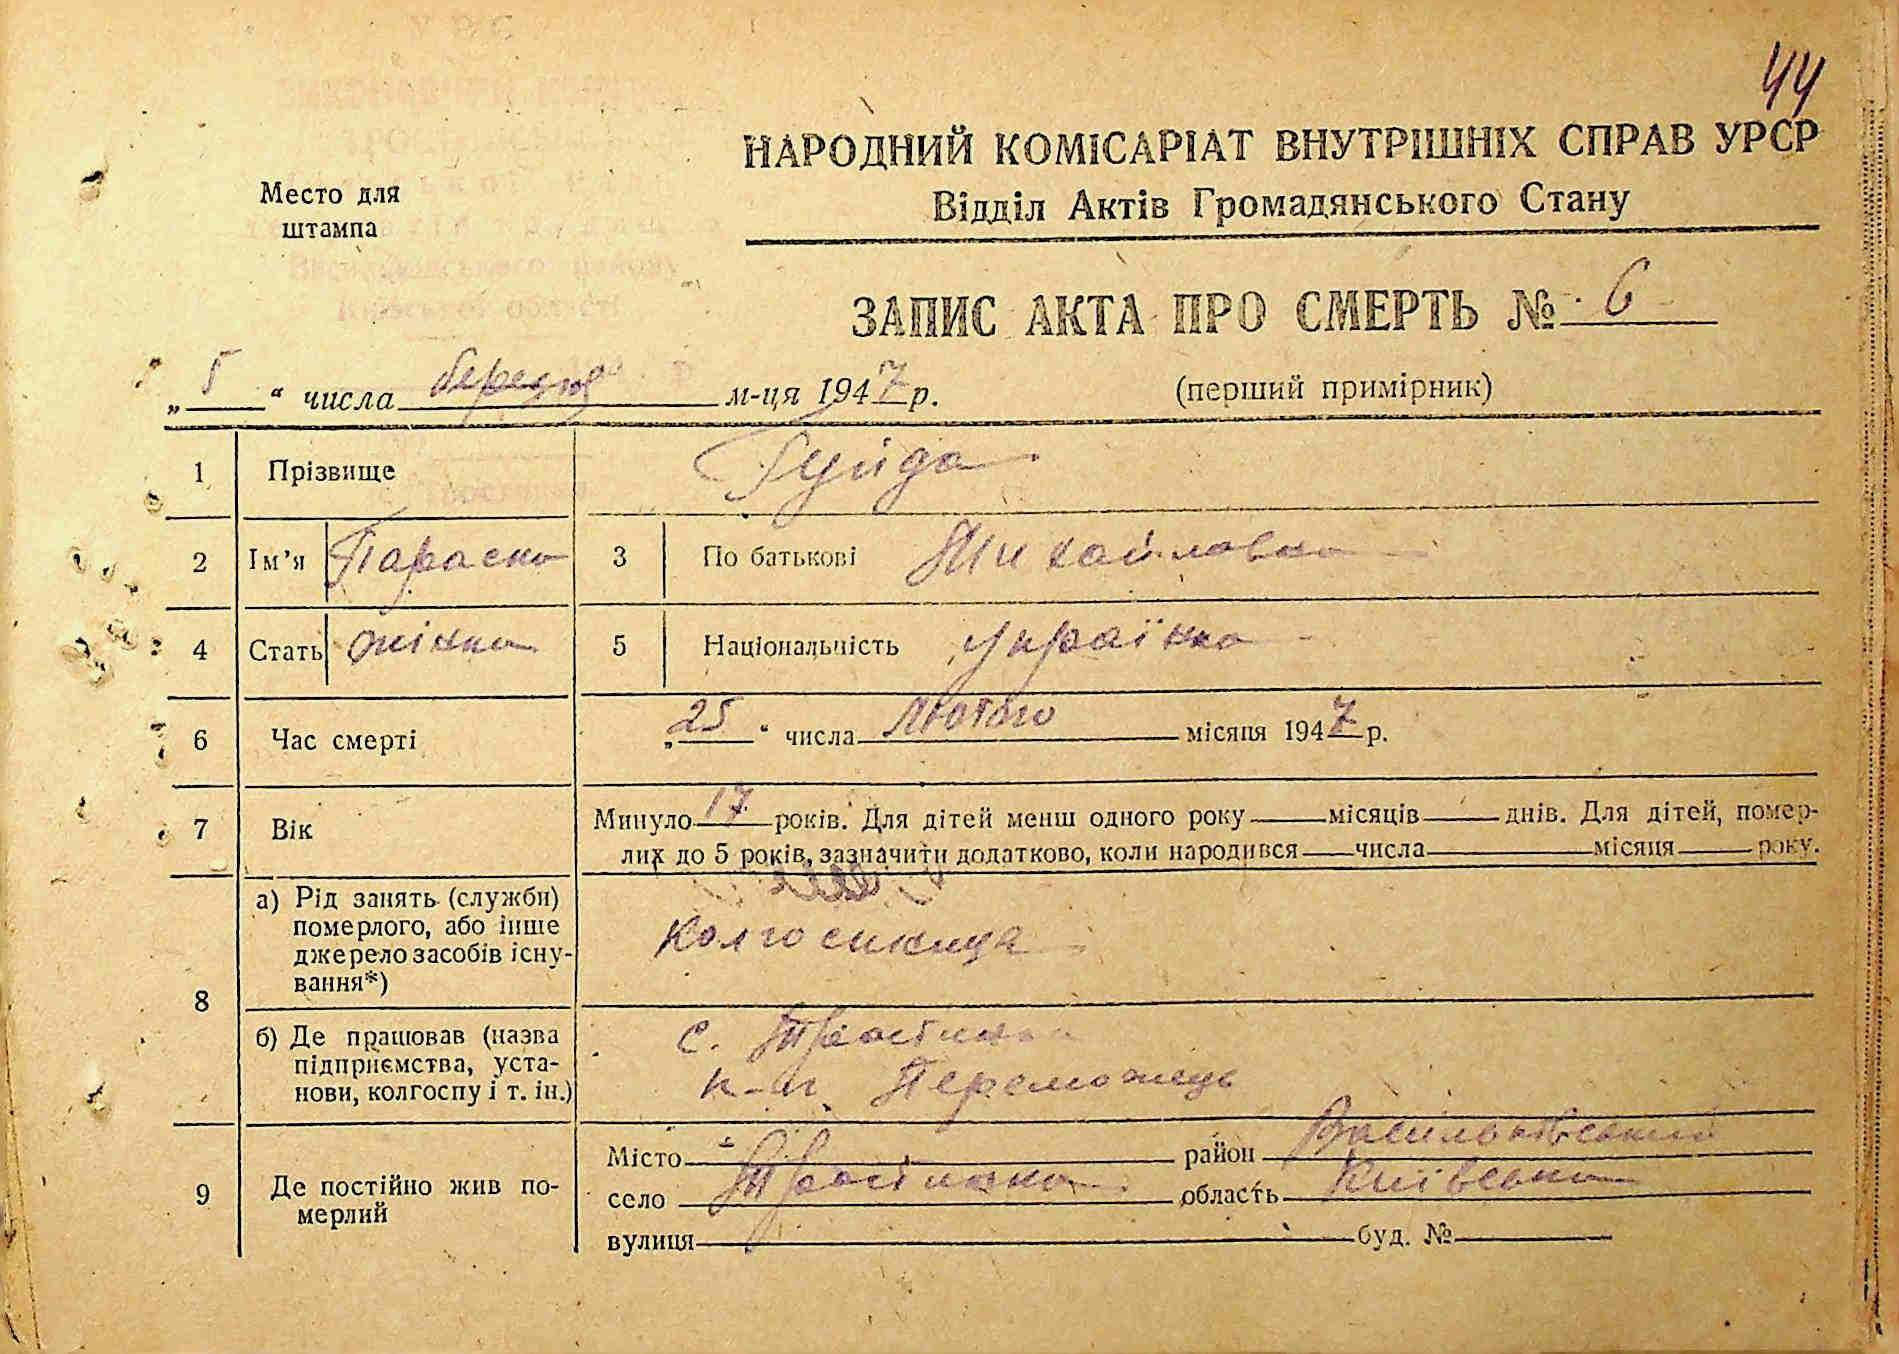 44
НАРОДНИЙ КОМІСАРІАТ ВНУТРІШНІХ СПРАВ УРСР
Відділ Актів Громадянського Стану
Место для
штампа
Васильківського району
Київської області
ЗАПИС АКТА ПРО СМЕРТЬ № 6
„5“ числа березня м-ця 1947 р. (перший примірник)
1 Прізвище Гуйда
2 Ім'я Параска 3 По батькові Михайловна
4 Стать жінка 5 Національність українка
6 Час смерті „25“ числа Лютого місяця 1947 р.
7 Вік Минуло 17 років. Для дітей менш одного року місяців днів. Для дітей, помер-
лих до 5 років, зазначити додатково, коли народився числа місяця року.
8 а) Рід занять (служби)
померлого, або інше
джерело засобів існу-
вання*)
колгоспниця
б) Де працював (назва
підприємства, уста-
нови, колгоспу і т. ін.)
с. Тростинка
к-п Переможець
9 Де постійно жив по-
мерлий
Місто — район Васильківський
село Тростинка область Київська
вулиця буд. №